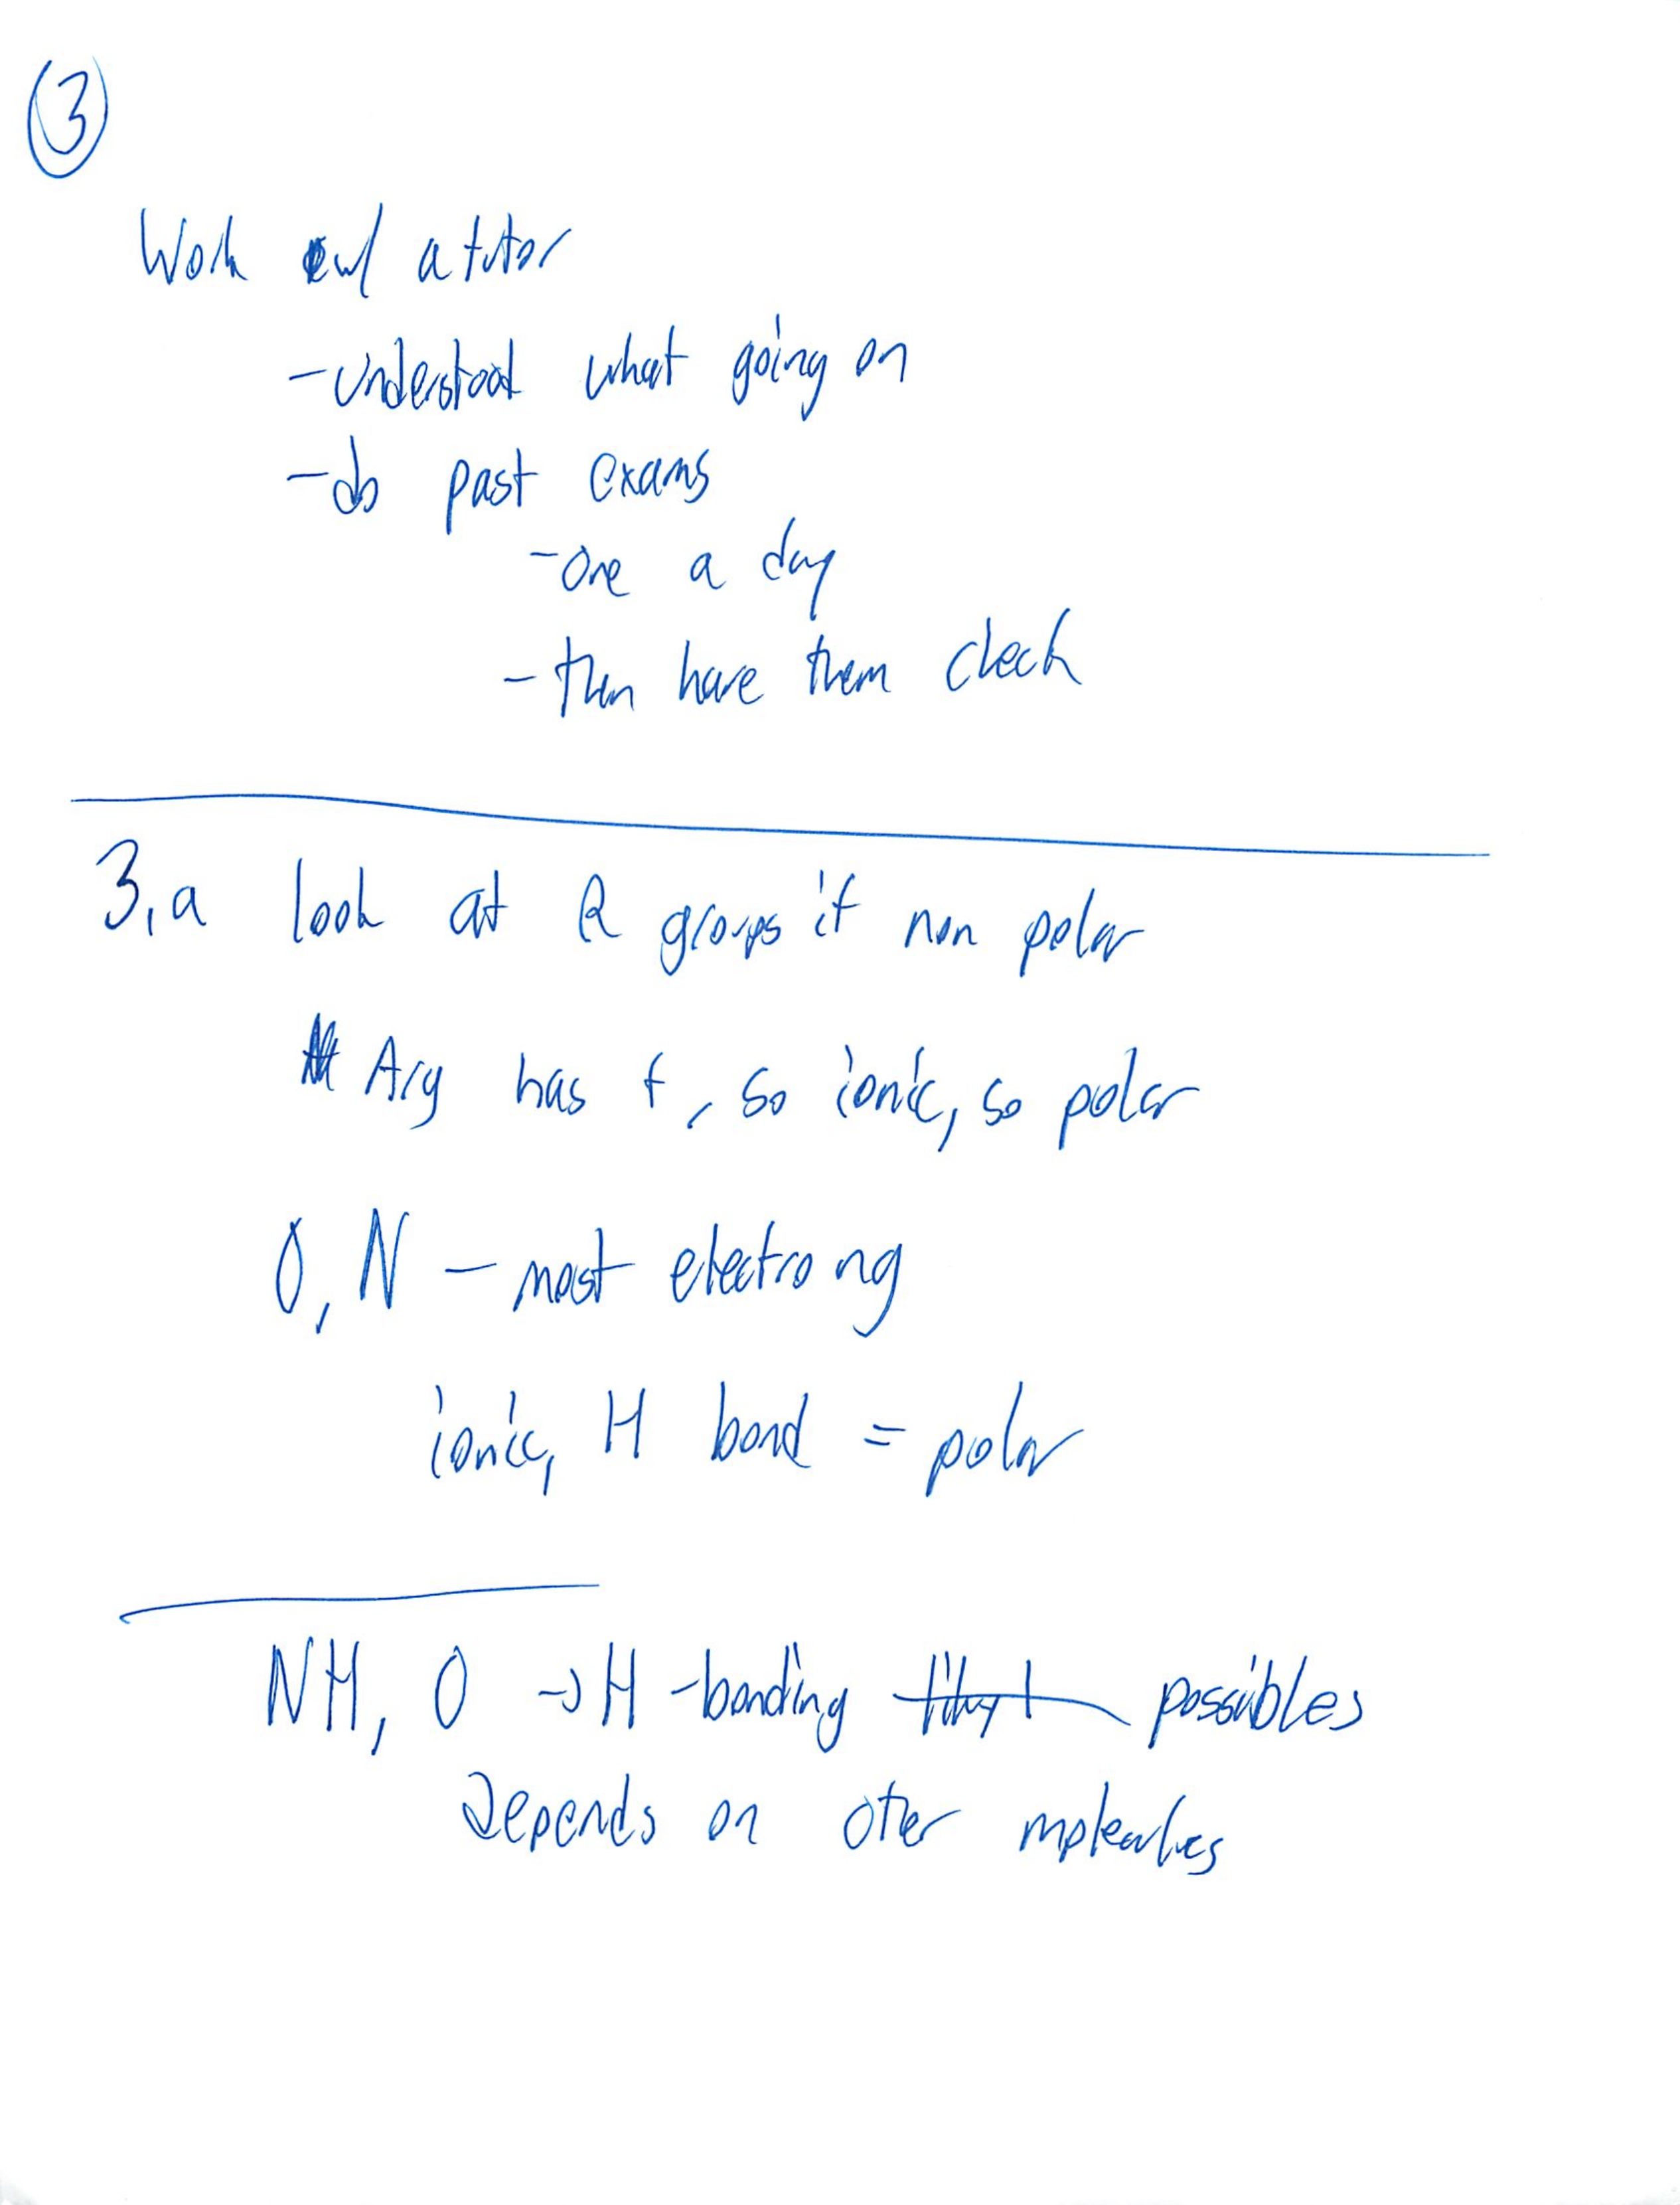 3
Work w/ a tutor
- understood what going on
- do past exams
- one a day
- then have them check
3.a look at R groups if non polar
Arg has +, so ionic, so polar
O, N - most electrong
ionic, H bond = polar
NH, O → H-bonding possibles
Depends on other molecules